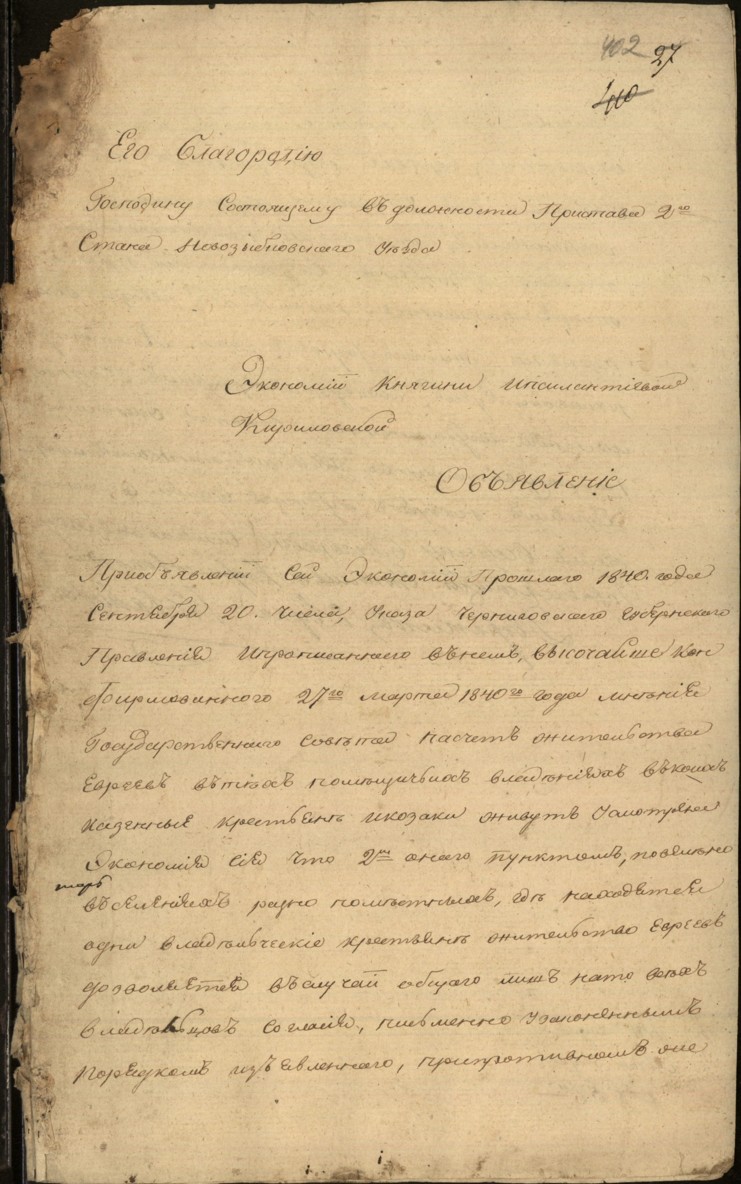 402 27
410
Его Благородию
Господину Состоящему въ должности Пристава 2го
Стана Новозыбковскаго Уѣзда
Экономіи Княгини Ипсилантіевой
Объявленіе
Приобъявленіи Сей Экономіи Прошлаго 1840. года
Сентебря 20. числа, Указа Черниговскаго Губернскаго
Правленія Ипрописаннаго внемъ, высочайше Кон
фирмованного 27го марта 1840го года мнѣніе
Государственнаго Совѣта насчетъ жительства
Евреевъ втѣхъ помѣщичьихъ владѣніяхъ вкоихъ
казенные крестьянѣ икозаки живутъ Усмотрѣла
Экономія сія что 2мъ онаго пунктомъ, повелѣно
въселеніяхъ разно помѣстныхъ, гдѣ находятся
одни владѣльческіе крестьянѣ жительство Евреевъ
дозволяется въслучай общаго лишъ нато всѣхъ
владѣльцовъ согласія, письменно Узаконеннымъ
порядкомъ изъявленнаго, припротивномъ же